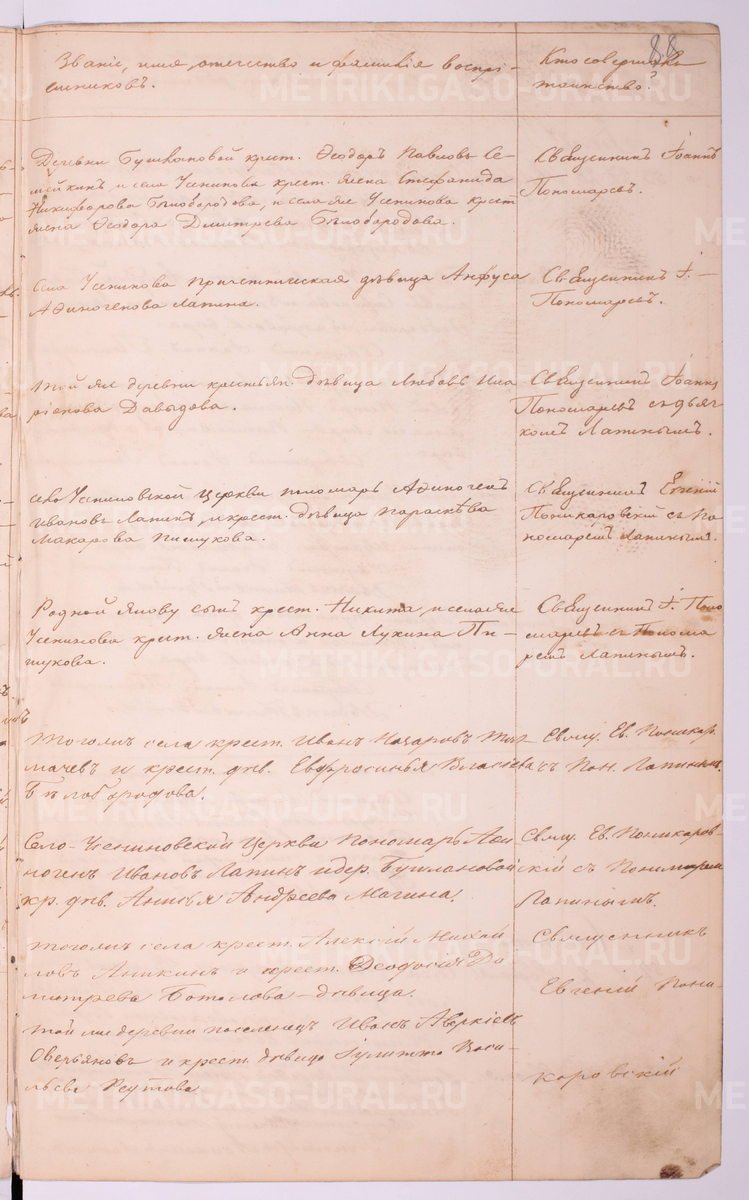 88
Званіе, имя, отечество и фамилія воспрі-
емниковъ.
Кто совершалъ
таинство?
Деревни Бушлановой крест. Ѳеодоръ Павловъ Се-
и села Усенинова крест. жена Стефанида
Никифорова Бѣлобородова, и села же Усенинова крест
жена Ѳеодора Дмитрева Бѣлобородова.
Священникъ Іоаннъ
Пономаревъ.
Села Усенинова причетническая дѣвица Анфуса
Аѳиногенова Лапина.
Священникъ І.
Пономаревъ.
Той же деревни крестьян. дѣвица Любовь Ила
ріонова Давыдова.
Священникъ Іоаннъ
Пономаревъ съ дьяч
комъ Лапинымъ.
Село Усениновской церкви пономарь Аѳиногенъ
Ивановъ Лапинъ, и крест. дѣвица Параскева
Макарова Пишукова.
Священникъ Евгеній
Поникаровскій съ По
номаремъ Лапинымъ.
Родной сынъ крест. Никита, и села же
Усенинова крест. жена Анна Лукина Пи-
шукова.
Священникъ І. Поно
маревъ съ Понома
ремъ Лапинымъ.
Тогожъ села крест. Иванъ Назаровъ Тол-
мачевъ и крест. дѣв. Евфросинья Власіева
Бѣлобородова.
Свящ. Ев. Поникар.
съ Пон. Лапинымъ
Село-Усениновской Церкви Пономарь Аѳи
ногенъ Ивановъ Лапинъ и дер. Бушлановой
кр. дѣв. Анисья Андреева Магина.
Свящ. Ев. Поникаров-
скій съ Пономаремъ
Лапинымъ.
Тогожъ села крест. Алексій Михай
ловъ Аникинъ и крест. Ѳеодосія Ди
митрева Ботолова - дѣвица.
Священникъ
Евгеній Пони-
Той же деревни поселенецъ Иванъ Аверкіевъ
и крест. дѣвица Іулитта Васи-
льева Реутова
каровскій
METRIKI.GASO-URAL.RU